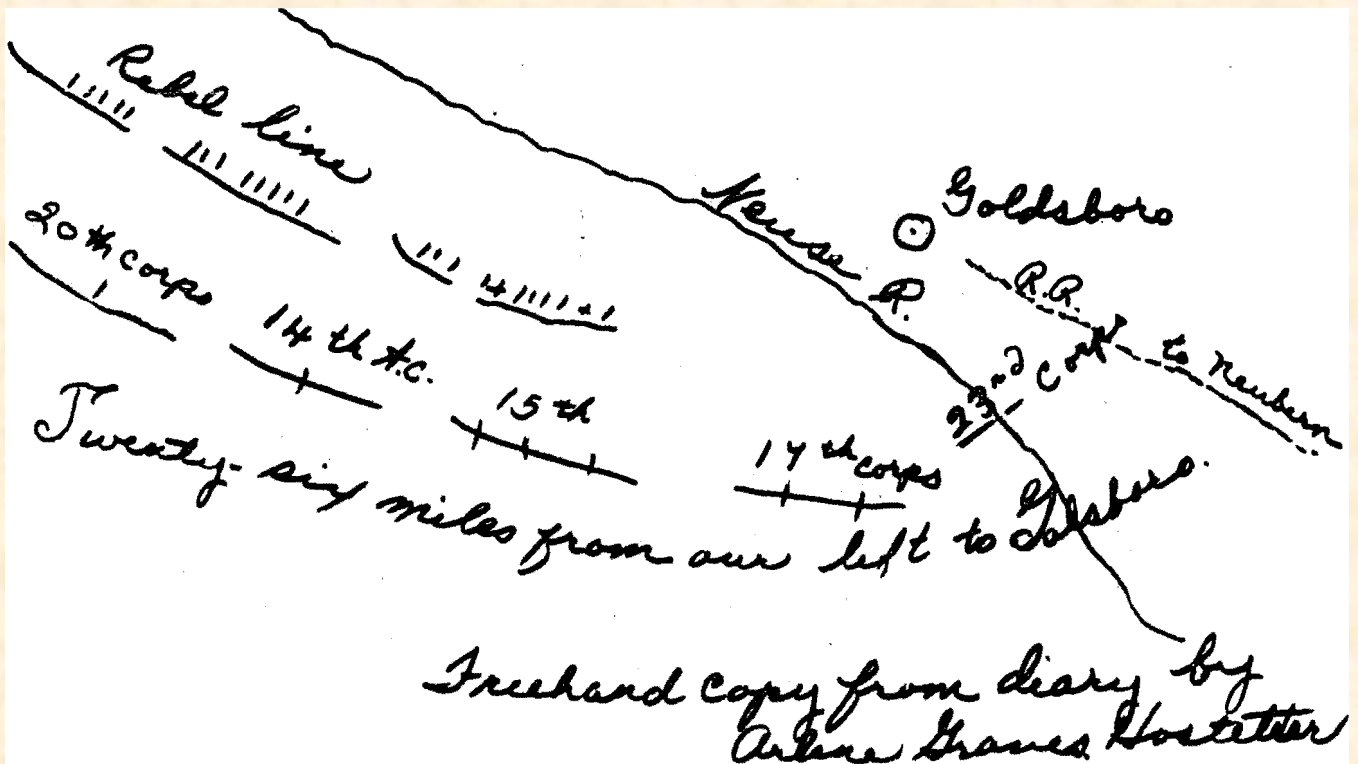 Rebel line
20th corps
14th A.C.
15th
17th corps
Neuse R.
Goldsboro
R.R. to Newbern
23rd Corps
Twenty-six miles from our left to Golsboro.
Freehand copy from diary by
Arlene Graves Hostetter